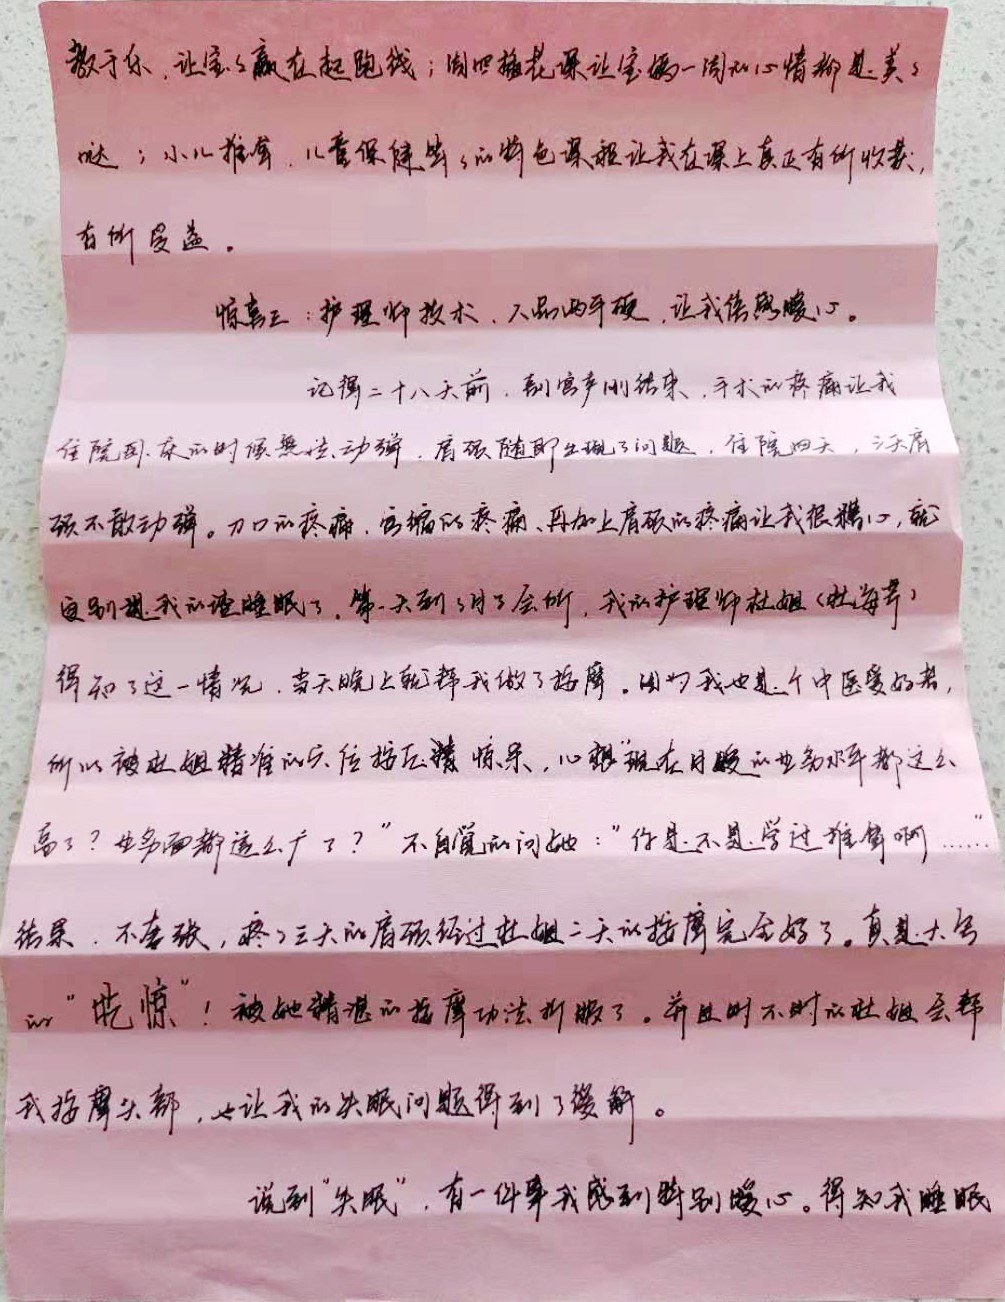 教于乐，让宝宝赢在起跑线；周四插花课让宝妈一周的心情都是美美
哒；小儿推拿，儿童保健等等的特色课程让我在课上真正有所收获，
有所受益。
惊喜三：护理师技术、人品两手硬，让我倍感暖心。
记得二十八天前，剖宫产刚结束，手术的疼痛让我
住院卧床的时候無法动弹，肩颈随即出现了问题，住院四天，三天肩
颈不敢动弹。刀口的疼痛，宫缩的疼痛、再加上肩颈的疼痛让我很糟心，就
更别提我的渣睡眠了。第一天到了月子会所，我的护理师杜姐（杜海
得知了这一情况，当天晚上就帮我做了按摩。因为我也是个中医爱好者，
所以被杜姐精准的穴位按压惊呆，心想“现在月嫂的业务水平都这么
高了？业务面都这么广了？”不自觉的问她：“你是不是学过推拿啊……”
结果，不夸张，疼了三天的肩颈经过杜姐二天的按摩完全好了。真是大写
的“吃惊”！被她精湛的按摩功法折服了。并且时不时的杜姐会帮
我按摩头部，也让我的失眠问题得到了缓解。
说到“失眠”，有一件事我感到特别暖心。得知我睡眠